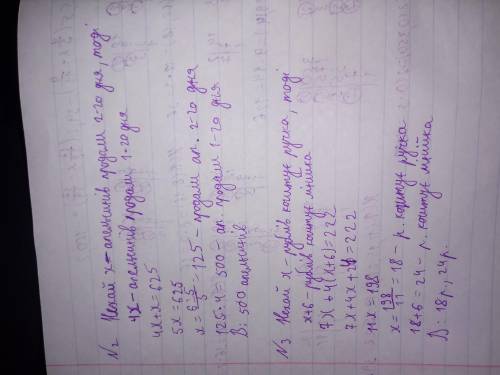 №2 Нехай x - апельсинів продали 2-го дня, тоді
4x - апельсинів продали 1-го дня
4x + x = 625
5x = 625
x = 625/5 = 125 - продали ап. 2-го дня
125·4 = 500 - ап. продали 1-го дня
В: 500 апельсинів
№3 Нехай x - рублів коштує ручка, тоді
x+6 - рублів коштує лінійка
7x + 4(x+6) = 222
7x + 4x + 24 = 222
11x = 198
x = 198/11 = 18 - р. коштує ручка
18+6 = 24 - р. коштує лінійка
В: 18 р., 24 р.